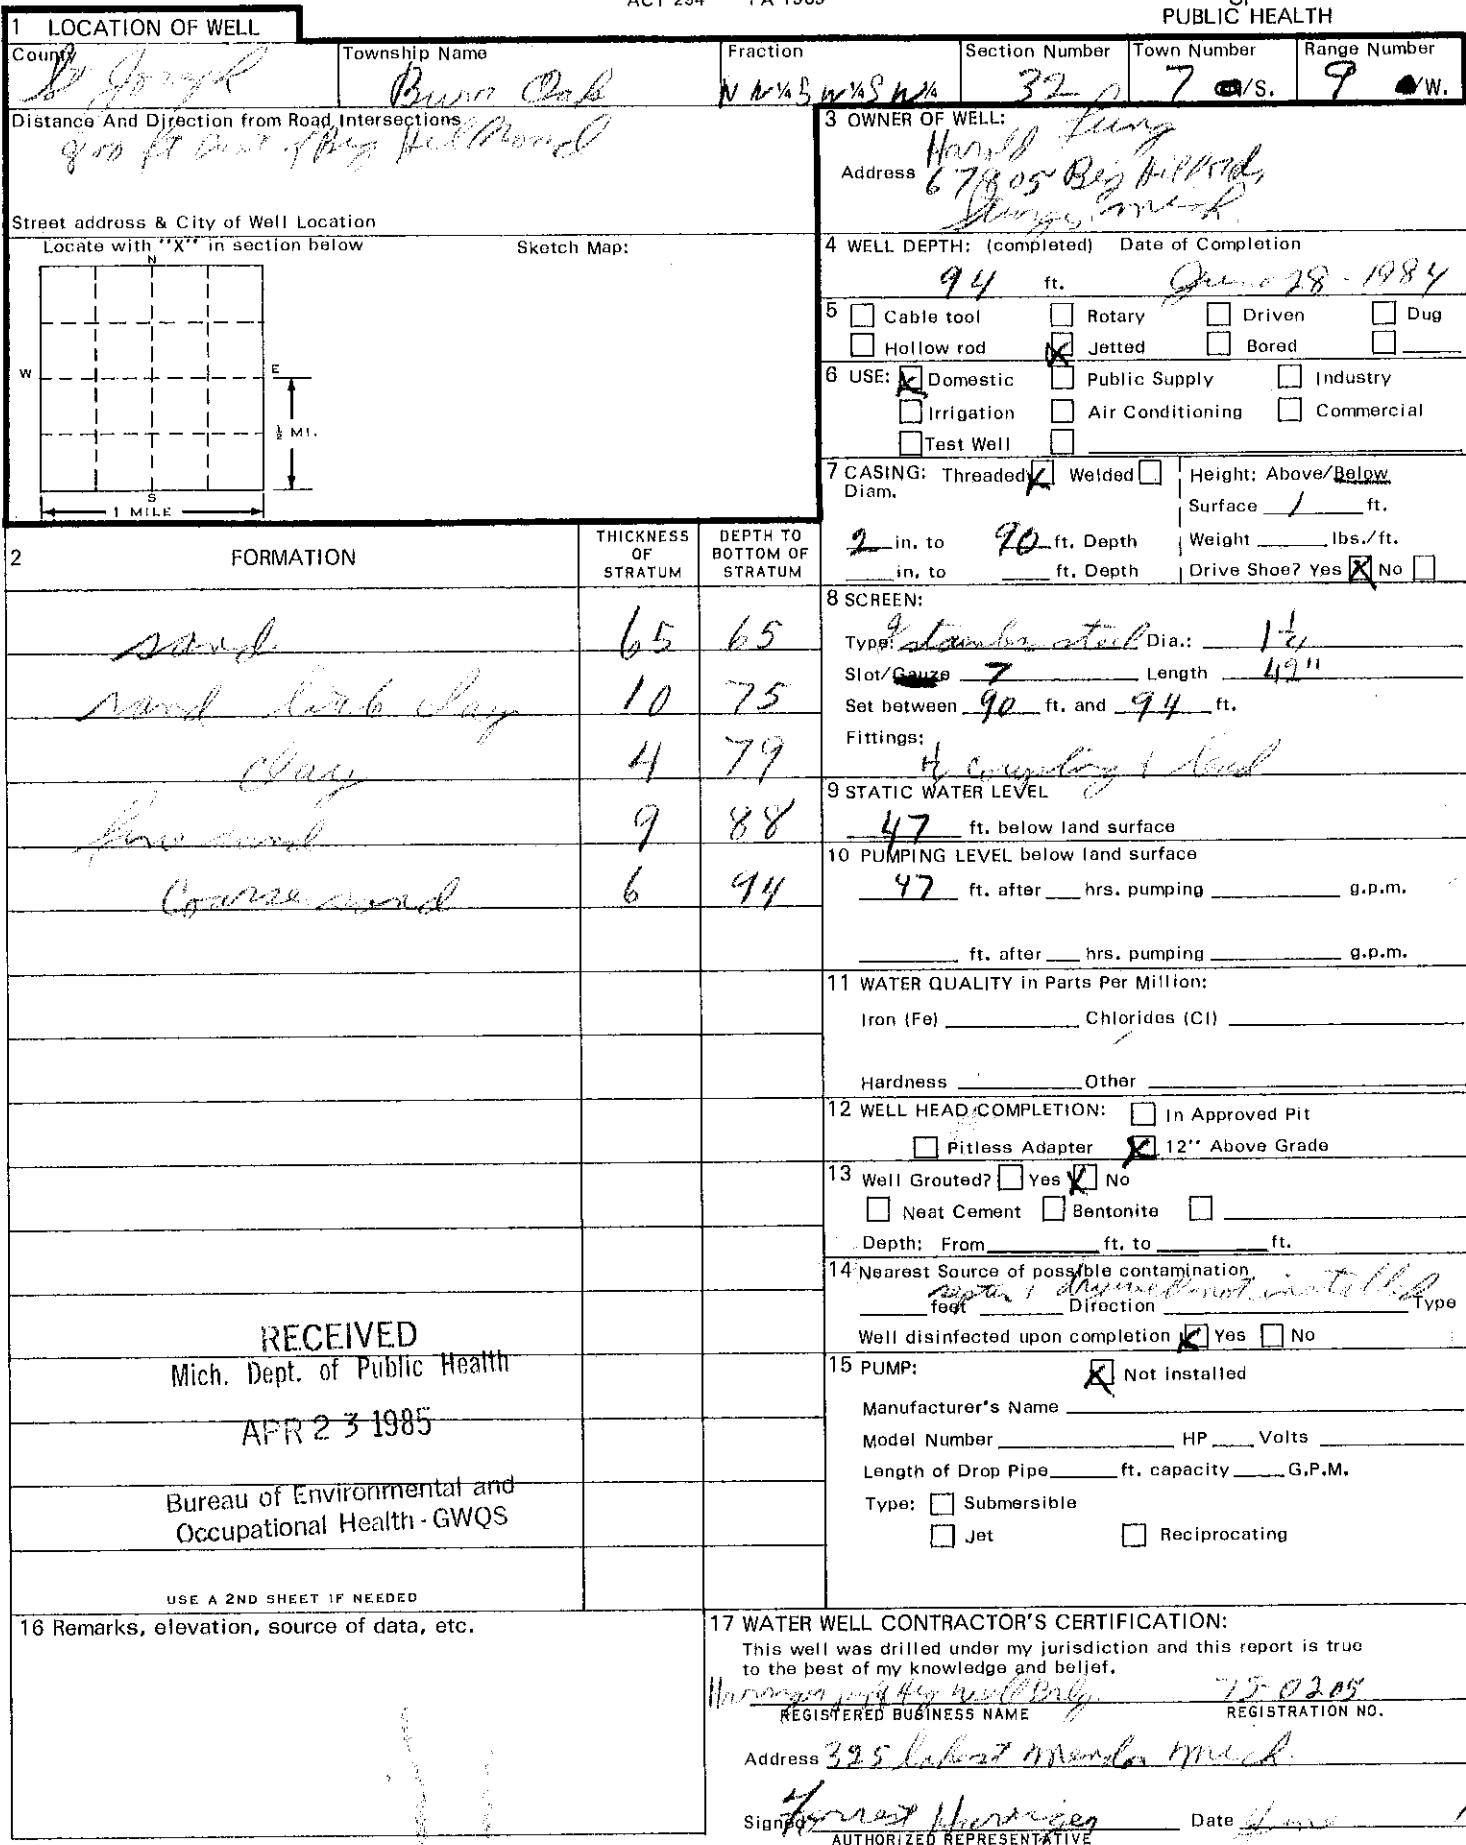 ACT 294 PA 1965
OF
PUBLIC HEALTH
1 LOCATION OF WELL
County St Joseph
Township Name Burr Oak
Fraction N W¼ S W¼ S W¼
Section Number 32
Town Number 7 /S.
Range Number 9 /W.
Distance And Direction from Road Intersections
800 ft of Big Hill Road
Street address & City of Well Location
Locate with "X" in section below
Sketch Map:
N
W
E
½ MI.
S
1 MILE
3 OWNER OF WELL:
Harold
Address 67805 Big Hill Rd,
Sturgis, Mich.
4 WELL DEPTH: (completed) Date of Completion
94 ft. June 28 - 1984
5 Cable tool Rotary Driven Dug
Hollow rod X Jetted Bored
6 USE: X Domestic Public Supply Industry
Irrigation Air Conditioning Commercial
Test Well
7 CASING: Threaded X Welded
Diam.
2 in. to 90 ft. Depth
in. to ft. Depth
Height: Above/Below
Surface 1 ft.
Weight lbs./ft.
Drive Shoe? Yes X No
2 FORMATION
THICKNESS OF STRATUM
DEPTH TO BOTTOM OF STRATUM
sand 65 65
sand clay 10 75
clay 4 79
fine sand 9 88
Coarse sand 6 94
8 SCREEN:
Type: steel Dia.: 1¼
Slot/Gauze 7 Length 49"
Set between 90 ft. and 94 ft.
Fittings:
coupling & lead
9 STATIC WATER LEVEL
47 ft. below land surface
10 PUMPING LEVEL below land surface
47 ft. after hrs. pumping g.p.m.
ft. after hrs. pumping g.p.m.
11 WATER QUALITY in Parts Per Million:
Iron (Fe) Chlorides (Cl)
Hardness Other
12 WELL HEAD COMPLETION: In Approved Pit
Pitless Adapter X 12" Above Grade
13 Well Grouted? Yes X No
Neat Cement Bentonite
Depth: From ft. to ft.
14 Nearest Source of possible contamination
septic & drywell not installed
feet Direction Type
Well disinfected upon completion X Yes No
15 PUMP: X Not installed
Manufacturer's Name
Model Number HP Volts
Length of Drop Pipe ft. capacity G.P.M.
Type: Submersible
Jet Reciprocating
RECEIVED
Mich. Dept. of Public Health
APR 23 1985
Bureau of Environmental and
Occupational Health - GWQS
USE A 2ND SHEET IF NEEDED
16 Remarks, elevation, source of data, etc.
17 WATER WELL CONTRACTOR'S CERTIFICATION:
This well was drilled under my jurisdiction and this report is true
to the best of my knowledge and belief.
Well Drlg. 75-0205
REGISTERED BUSINESS NAME REGISTRATION NO.
Address 325 Mendon Mich.
Signed Forrest Date June
AUTHORIZED REPRESENTATIVE